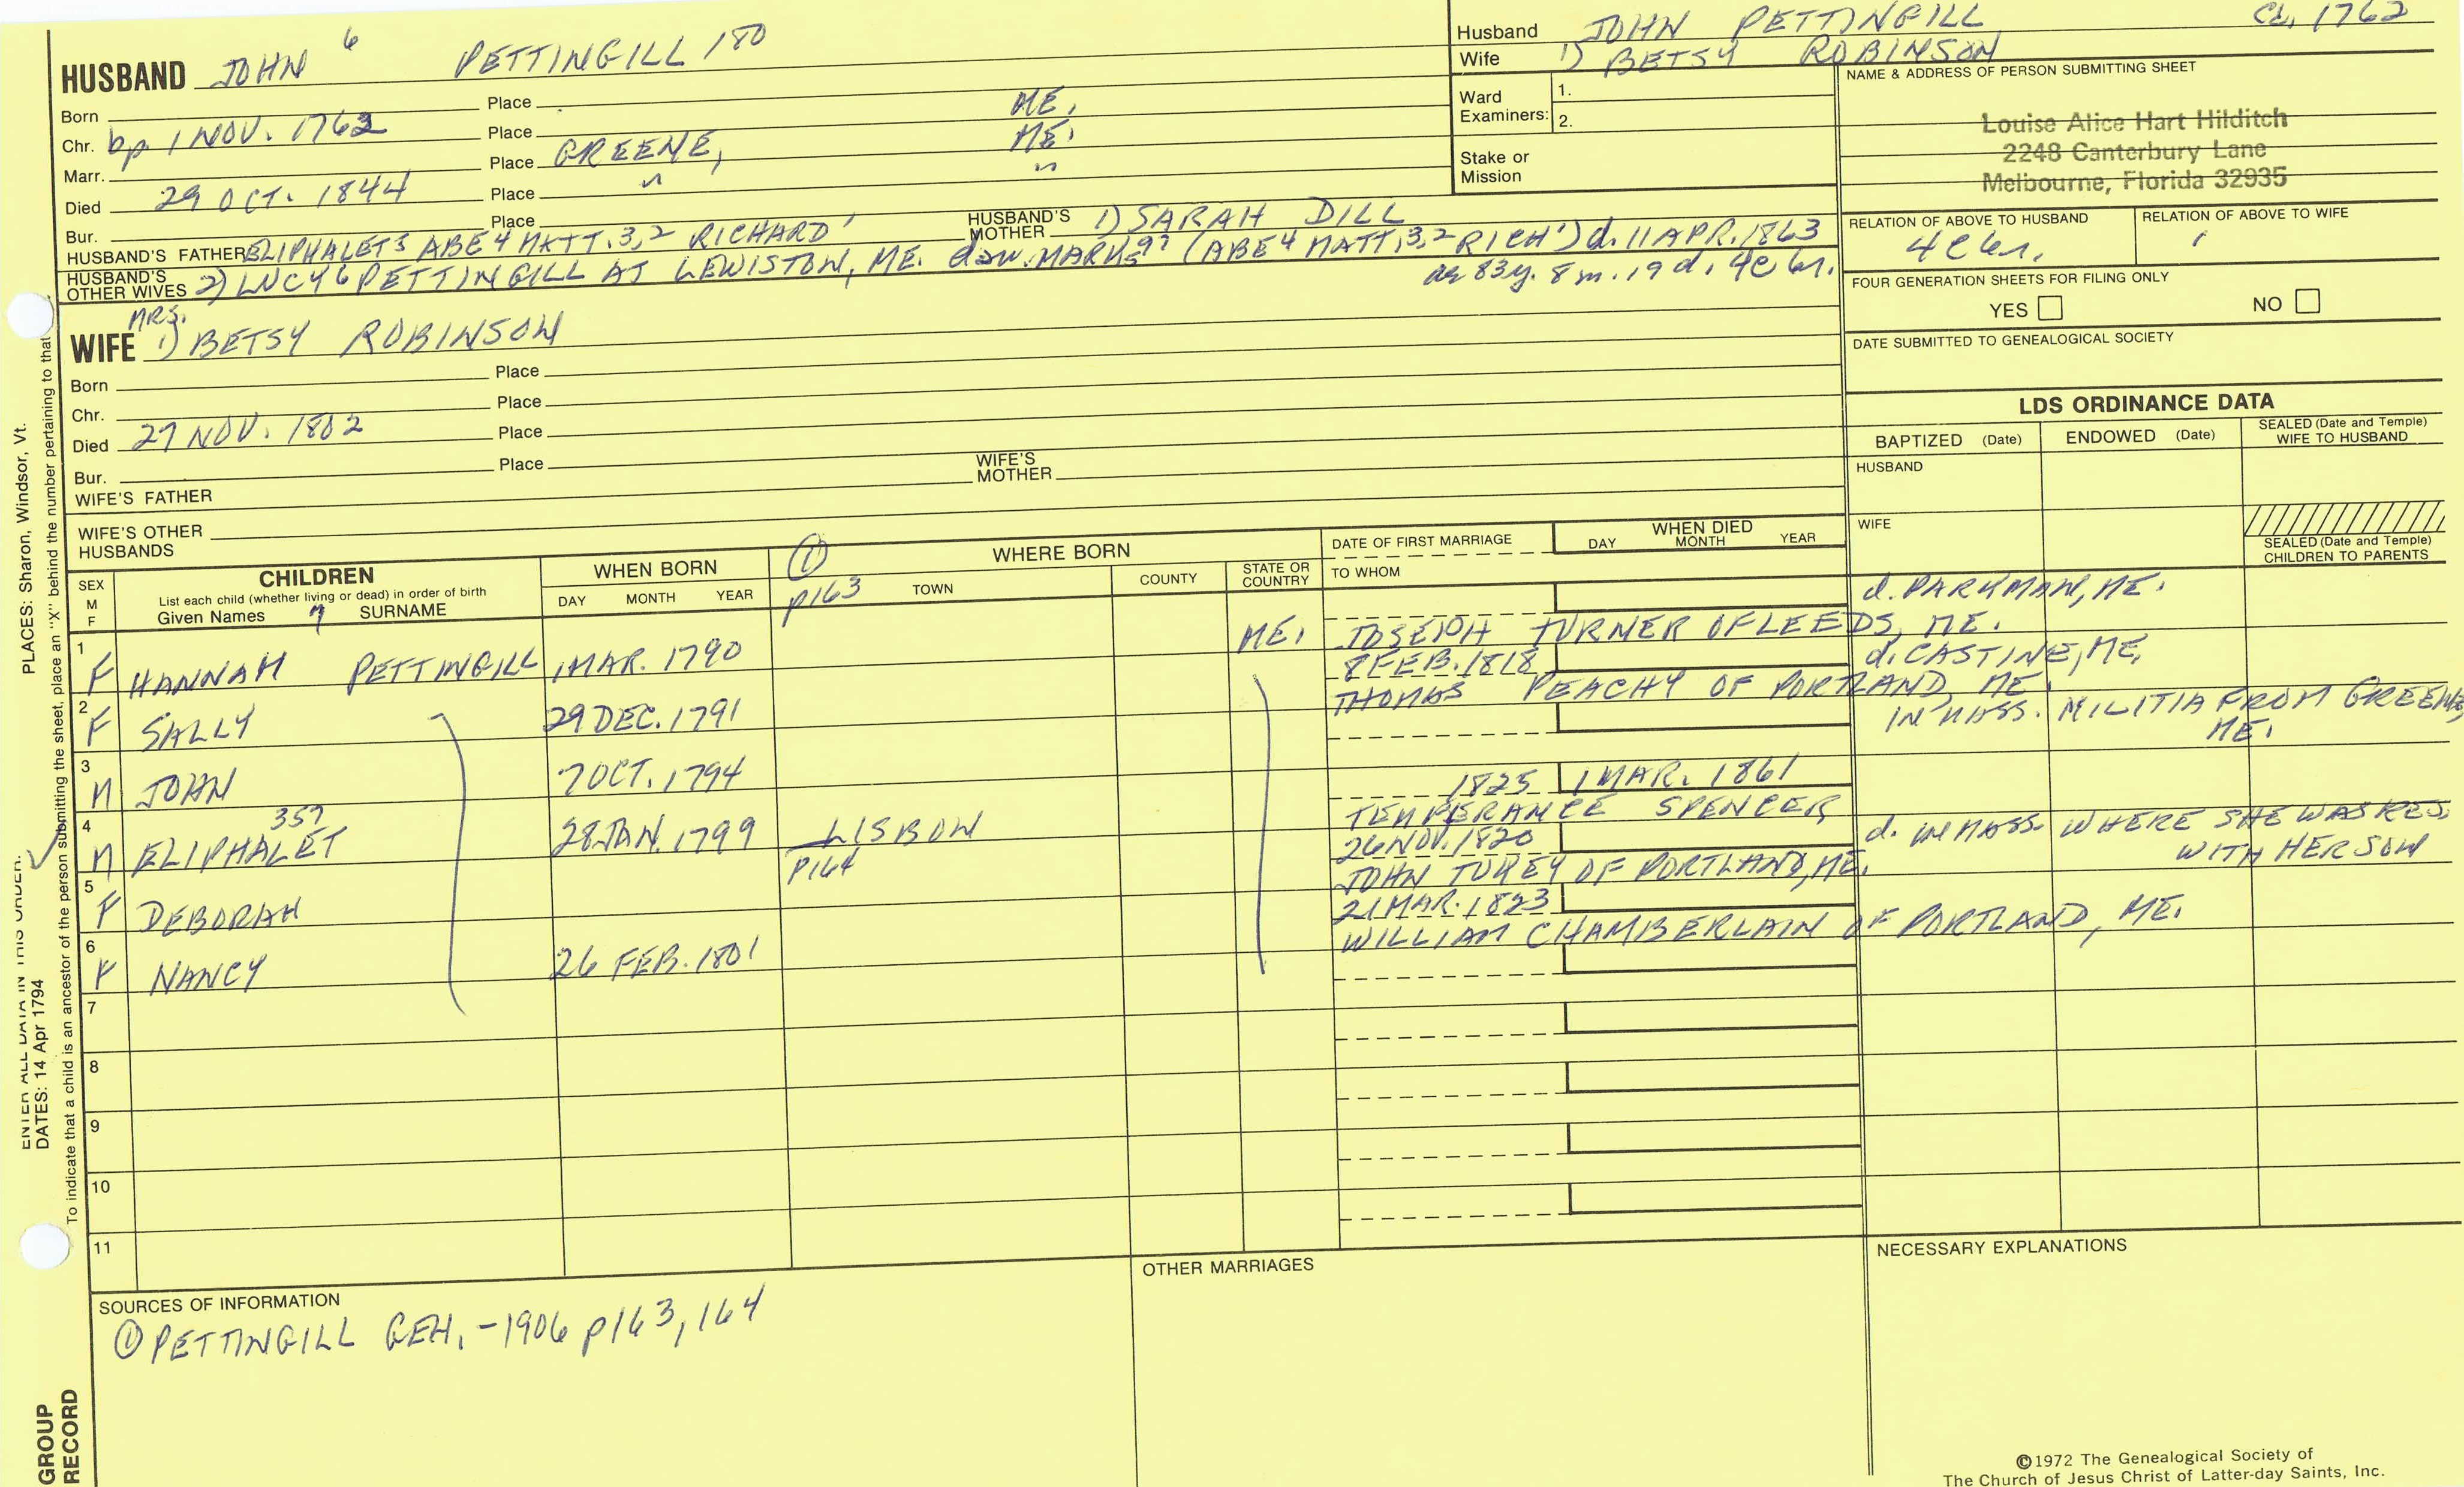 HUSBAND JOHN 6 PETTINGILL 180
Born Place ME.
Chr. bp 1 NOV. 1762 Place ME.
Marr. Place GREENE, "
Died 29 OCT. 1844 Place "
Bur. Place
HUSBAND'S FATHER ELIPHALET5 ABE4 MATT.3,2 RICHARD' HUSBAND'S MOTHER 1) SARAH DILL
HUSBAND'S OTHER WIVES 2) LUCY6 PETTINGILL AT LEWISTON, ME. daw. MARK5 9? (ABE4 MATT.3,2 RICH') d. 11 APR. 1863
ae 83y. 8m. 19d. 4C 6r.
MRS.
WIFE 1) BETSY ROBINSON
Born Place
Chr. Place
Died 27 NOV. 1802 Place
Bur. Place
WIFE'S FATHER WIFE'S MOTHER
WIFE'S OTHER HUSBANDS
Husband JOHN PETTINGILL Ch. 1762
Wife 1) BETSY ROBINSON
Ward Examiners: 1.
2.
Stake or Mission
NAME & ADDRESS OF PERSON SUBMITTING SHEET
Louise Alice Hart Hilditch
2248 Canterbury Lane
Melbourne, Florida 32935
RELATION OF ABOVE TO HUSBAND RELATION OF ABOVE TO WIFE
4C 6r.
FOUR GENERATION SHEETS FOR FILING ONLY
YES NO
DATE SUBMITTED TO GENEALOGICAL SOCIETY
LDS ORDINANCE DATA
BAPTIZED (Date) ENDOWED (Date) SEALED (Date and Temple) WIFE TO HUSBAND
HUSBAND
WIFE
SEALED (Date and Temple) CHILDREN TO PARENTS
SEX M F
CHILDREN
List each child (whether living or dead) in order of birth
Given Names 7 SURNAME
WHEN BORN
DAY MONTH YEAR
① p163
WHERE BORN
TOWN COUNTY STATE OR COUNTRY
DATE OF FIRST MARRIAGE
TO WHOM
WHEN DIED
DAY MONTH YEAR
d. PARKMAN, ME.
1 F HANNAH PETTINGILL 1 MAR. 1790 ME. JOSEPH TURNER OF LEEDS, ME.
8 FEB. 1818 d. CASTINE, ME.
2 F SALLY 29 DEC. 1791 THOMAS PEACHY OF PORTLAND, ME.
IN MASS. MILITIA FROM GREENE, ME.
3 M JOHN 7 OCT. 1794
1825 1 MAR. 1861
4 M ELIPHALET 357 28 JAN. 1799 LISBON TEMPERANCE SPENCER
p164
26 NOV. 1820 d. IN MASS. WHERE SHE WAS RES. WITH HER SON
5 F DEBORAH JOHN TUKEY OF PORTLAND, ME.
21 MAR. 1823
6 F NANCY 26 FEB. 1801 WILLIAM CHAMBERLAIN OF PORTLAND, ME.
7
8
9
10
11
SOURCES OF INFORMATION
① PETTINGILL GEN. - 1906 p163, 164
OTHER MARRIAGES
NECESSARY EXPLANATIONS
©1972 The Genealogical Society of
The Church of Jesus Christ of Latter-day Saints, Inc.
PLACES: Sharon, Windsor, Vt.
ENTER ALL DATA IN THIS ORDER:
DATES: 14 Apr 1794
To indicate that a child is an ancestor of the person submitting the sheet, place an "X" behind the number pertaining to that
GROUP
RECORD